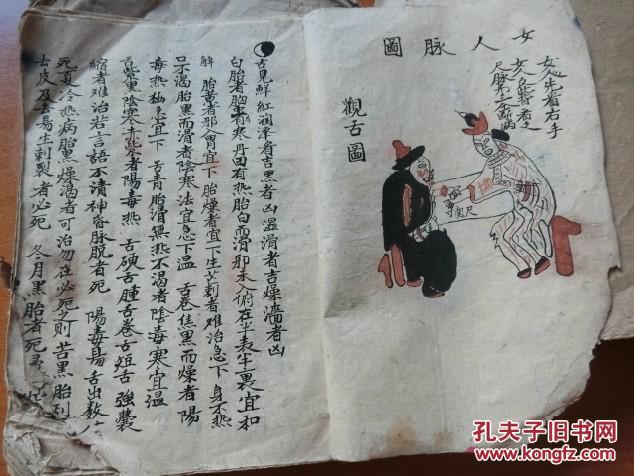 圖脉人女
女必先看右手
尺脉第一命脉
觀舌圖
寸
關
尺
舌見鮮紅潤澤者吉黑者凶溫滑者吉燥濇者凶
白胎者胸有寒丹田有热胎白而滑邪未入腑在半表半裏宜和
觧 胎黃者邪入胃宜下 胎燥者宜下生芒刺者难治急下 身不热
口不渴胎黑而滑者陰寒法宜急下温 舌卷焦黑而燥者陽
毒热極急宜下 舌青胎滑無热不渴者陰毒寒宜温
舌紫 陰寒 者陽毒热 舌硬舌腫舌卷舌短舌強囊
縮者难治若言語不清神昏脉脱者死 陽毒 舌出数寸
死 冷热病胎黑燥渴者可治勿在必死之則 苦黑胎刮
去皮及去易生刺裂者必死 冬月黑胎者死
孔夫子旧书网
www.kongfz.com